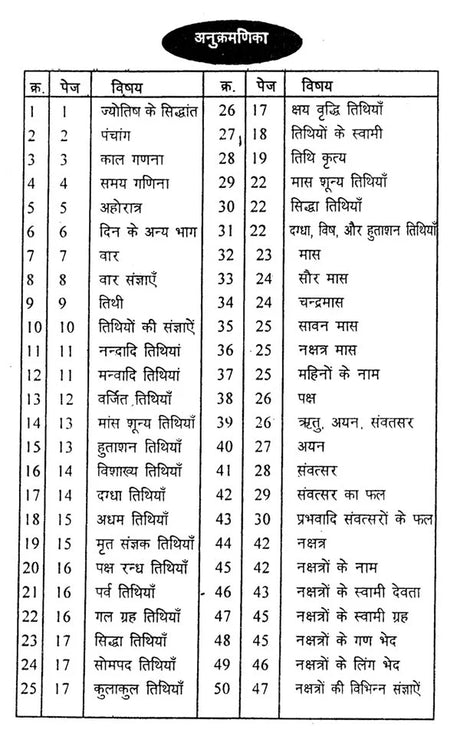 अनुक्रमणिका
क्र. पेज विषय क्र. पेज विषय
1 1 ज्योतिष के सिद्धांत 26 17 क्षय वृद्धि तिथियाँ
2 2 पंचांग 27 18 तिथियों के स्वामी
3 3 काल गणना 28 19 तिथि कृत्य
4 4 समय गणिना 29 22 मास शून्य तिथियाँ
5 5 अहोरात्र 30 22 सिद्धा तिथियाँ
6 6 दिन के अन्य भाग 31 22 दग्धा, विष, और हुताशन तिथियाँ
7 7 वार 32 23 मास
8 8 वार संज्ञाएँ 33 24 सौर मास
9 9 तिथी 34 24 चन्द्रमास
10 10 तिथियों की संज्ञाऐं 35 25 सावन मास
11 11 नन्दादि तिथियां 36 25 नक्षत्र मास
12 11 मन्वादि तिथियाँ 37 25 महिनों के नाम
13 12 वर्जित तिथियाँ 38 26 पक्ष
14 13 मांस शून्य तिथियाँ 39 26 ऋतु, अयन, संवतसर
15 13 हुताशन तिथियाँ 40 27 अयन
16 14 विशाख्य तिथियाँ 41 28 संवत्सर
17 14 दग्धा तिथियाँ 42 29 संवत्सर का फल
18 15 अधम तिथियाँ 43 30 प्रभवादि संवत्सरों के फल
19 15 मृत संज्ञक तिथियाँ 44 42 नक्षत्र
20 16 पक्ष रन्ध तिथियाँ 45 42 नक्षत्रों के नाम
21 16 पर्व तिथियाँ 46 43 नक्षत्रों के स्वामी देवता
22 16 गल ग्रह तिथियाँ 47 45 नक्षत्रों के स्वामी ग्रह
23 17 सिद्धा तिथियाँ 48 45 नक्षत्रों के गण भेद
24 17 सोमपद तिथियाँ 49 46 नक्षत्रों के लिंग भेद
25 17 कुलाकुल तिथियाँ 50 47 नक्षत्रों की विभिन्न संज्ञाऐं